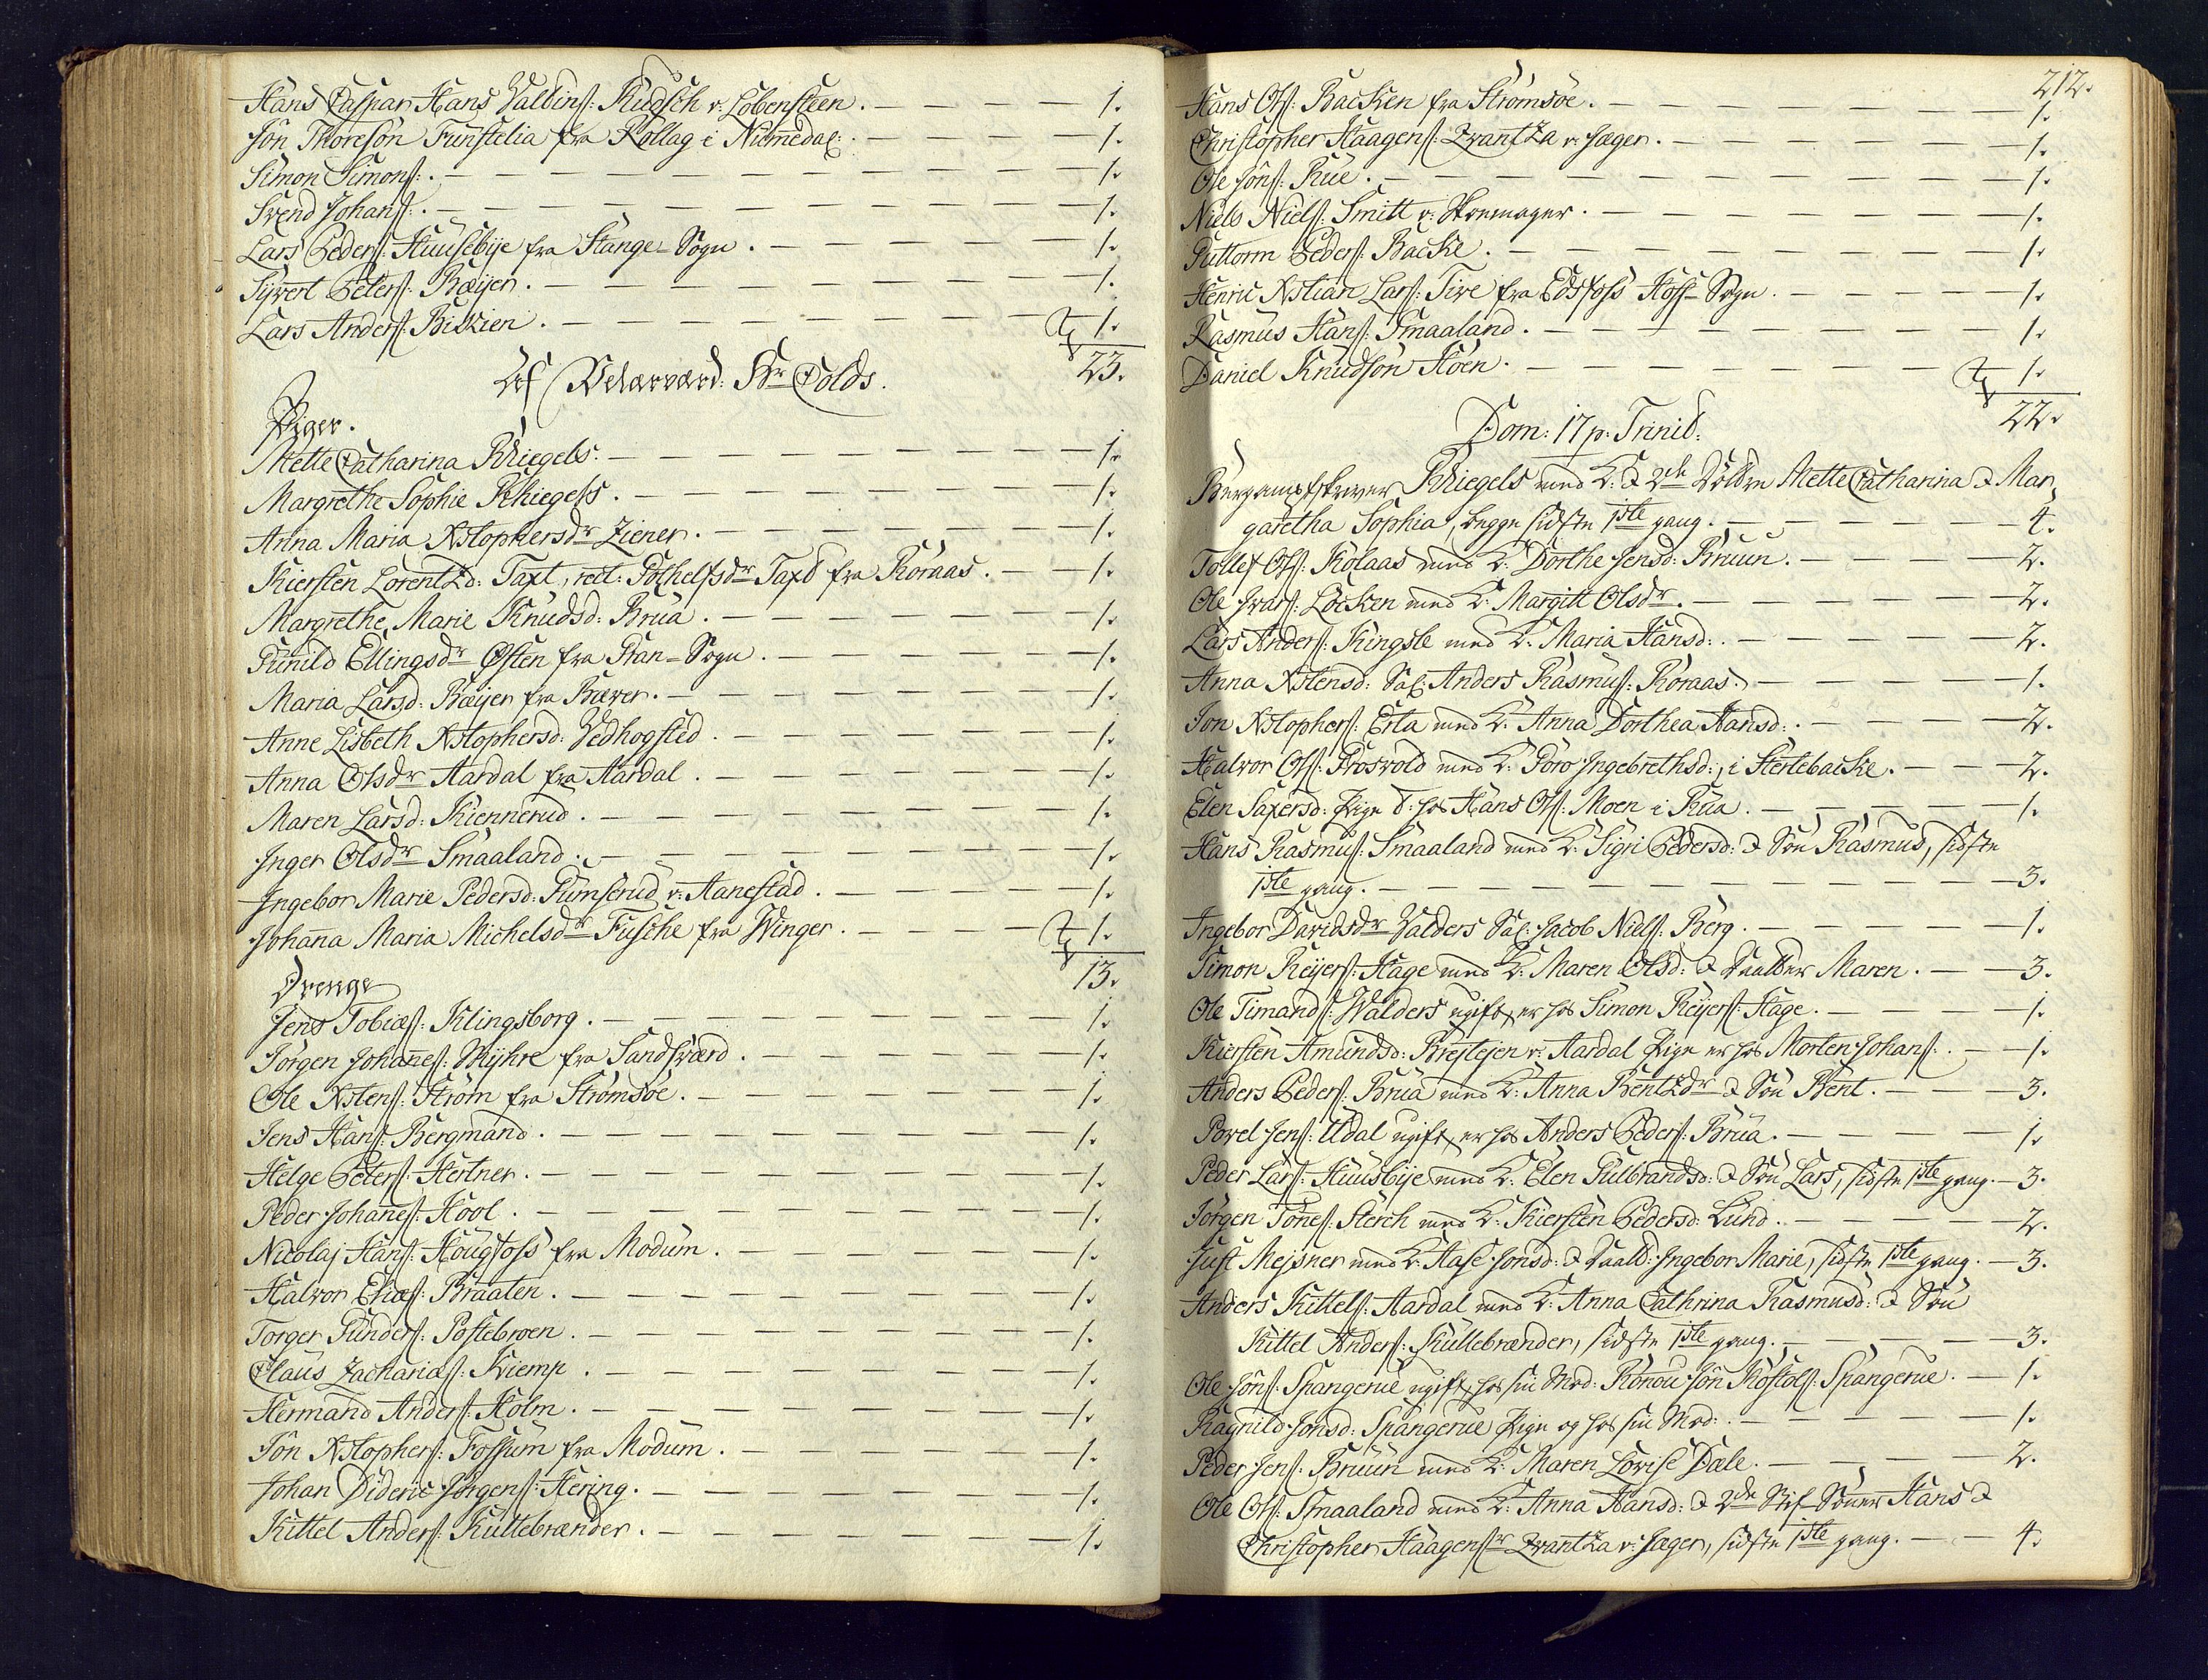 Hans Caspar Hans Valtins: Kudsch v: Lobensteen. — 1.
Jon Thoresön Funtelia fra Rollag i Numedal: — 1.
Simon Simons: — 1.
Svend Johans: — 1.
Lars Peders: Huusebye fra Stange-Sogn. — 1.
Syvert Peters: Bøyer. — 1.
Lars Anders: Bilkien. — 1.
23.
Af Velærværd: Hr Colds.
Piger.
Mette Catharina Rhiegels. — 1.
Margrethe Sophie Rhiegels. — 1.
Anna Maria Xstophersdr Ziener. — 1.
Kiersten Lorentzd: Taxt, rect: Gothelfsdr Taxt fra Röraas. — 1.
Margrethe Marie Knudsd: Brua. — 1.
Gunild Ellingsdr Østen fra Gran-Sogn. — 1.
Maria Larsd: Bøyer fra Bæver. — 1.
Anne Lisbeth Xstophersd: Vedhogsted. — 1.
Anna Olsdr Aardal fra Aardal. — 1.
Maren Larsd: Kiennerud. — 1.
Inger Olsdr Smaaland. — 1.
Ingebor Marie Pedersd: Gumserud v: Aanestad. — 1.
Johanna Maria Michelsdr Fusche fra Winger. — 1.
13.
Drenge
Jens Tobiæs: Klingsborg. — 1.
Jörgen Johannes: Myhre fra Sandsværd. — 1.
Ole Xstens: Ström fra Strömsöe. — 1.
Jens Hans: Bergmand. — 1.
Helge Peters: Hertner. — 1.
Peder Johannes: Hool. — 1.
Nicolaj Hans: Hougfoss fra Modum. — 1.
Halvor Eliæs: Braaten. — 1.
Torger Gunders: Postebroen. — 1.
Claus Zachariæs: Kiemp. — 1.
Hermand Anders: Holm. — 1.
Jon Xstophers: Fossum fra Modum. — 1.
Johan Dideric Jörgens: Hering. — 1.
Kittel Anders: Kullebrænder. — 1.
212.
Hans Ols: Backen fra Strömsöe. — 1.
Christopher Haagens: Zvantza v: Jæger. — 1.
Ole Jons: Rue. — 1.
Niels Niels: Smitt v: Skoemager. — 1.
Guttorm Peders: Backe. — 1.
Henric Xstian Lars: Tive fra Edsfoss Hofs-Sogn. — 1.
Rasmus Hans: Smaaland. — 1.
Daniel Knudsön Hoen. — 1.
22.
Dom: 17 p: Trinit:
Bergamptskriver Rhiegels med K: & 2de Döttre Mette Catharina & Mar,
garetha Sophia, begge sidste 1ste gang. — 4.
Tollef Ols: Kolaas med K: Dorthe Jensd: Bruun. — 2.
Ole Ivars: Löcken med K: Margitt Olsdr. — 2.
Lars Anders: Kingsle med K: Maria Hansd: — 2.
Anna Xstensd: Sal: Anders Rasmus: Röraas. — 1.
Jon Xstophers: Esta med K: Anna Dorthea Hansd: — 2.
Halvor Ols: Frosvold med K: Goro Ingebrethsd:, i Stertebacke. — 2.
Elen Saxersd: Pige t: hos Hans Ols: Moen i Rua. — 1.
Hans Rasmus: Smaaland med K: Sigri Pedersd: & Sön Rasmus, sidste
1ste gang. — 3.
Ingebor Davidsdr Valders Sal: Jacob Niels: Berg. — 1.
Simon Reyers: Hage med K: Maren Olsd: & Daatter Maren. — 3.
Ole Timands: Walders ugift, er hos Simon Reyers: Hage. — 1.
Kiersten Amundsd: Brejlejen v: Aardal Pige er hos Morten Johans: — 1.
Anders Peders: Brua med K: Anna Bentzdr & Sön Bent. — 3.
Povel Jens: Udal ugift, er hos Anders Peders: Brua. — 1.
Peder Lars: Huusbye med K: Elen Gulbrandsd: & Sön Lars, sidste 1ste gang. — 3.
Jörgen Tönes: Sterch med K: Kiersten Pedersd: Lund. — 2.
Just Mejsner med K: Aase Jonsd: & Daatt: Ingebor Marie, sidste 1ste gang. — 3.
Anders Kittels: Aardal med K: Anna Cathrina Rasmusd: & Sön
Kittel Anders: Kullebrænder, sidste 1ste gang. — 3.
Ole Jons: Spangerue ugift, hos sin Mod: Ronou Jon Kostols: Spangerue. — 1.
Ragnild Jonsd: Spangerue Pige og hos sin Mod: — 1.
Peder Jens: Bruun med K: Maren Lovise Dale. — 2.
Ole Ols: Smaaland med K: Anna Hansd: & 2de Stif Sönner Hans &
Christopher Haagensr Zvantza v: Jæger, sidste 1ste gang. — 4.